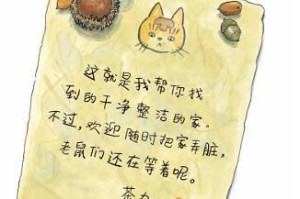 这就是我帮你找
到的干净整洁的家。
不过,欢迎随时把家弄脏,
老鼠们还在等着呢。
茶